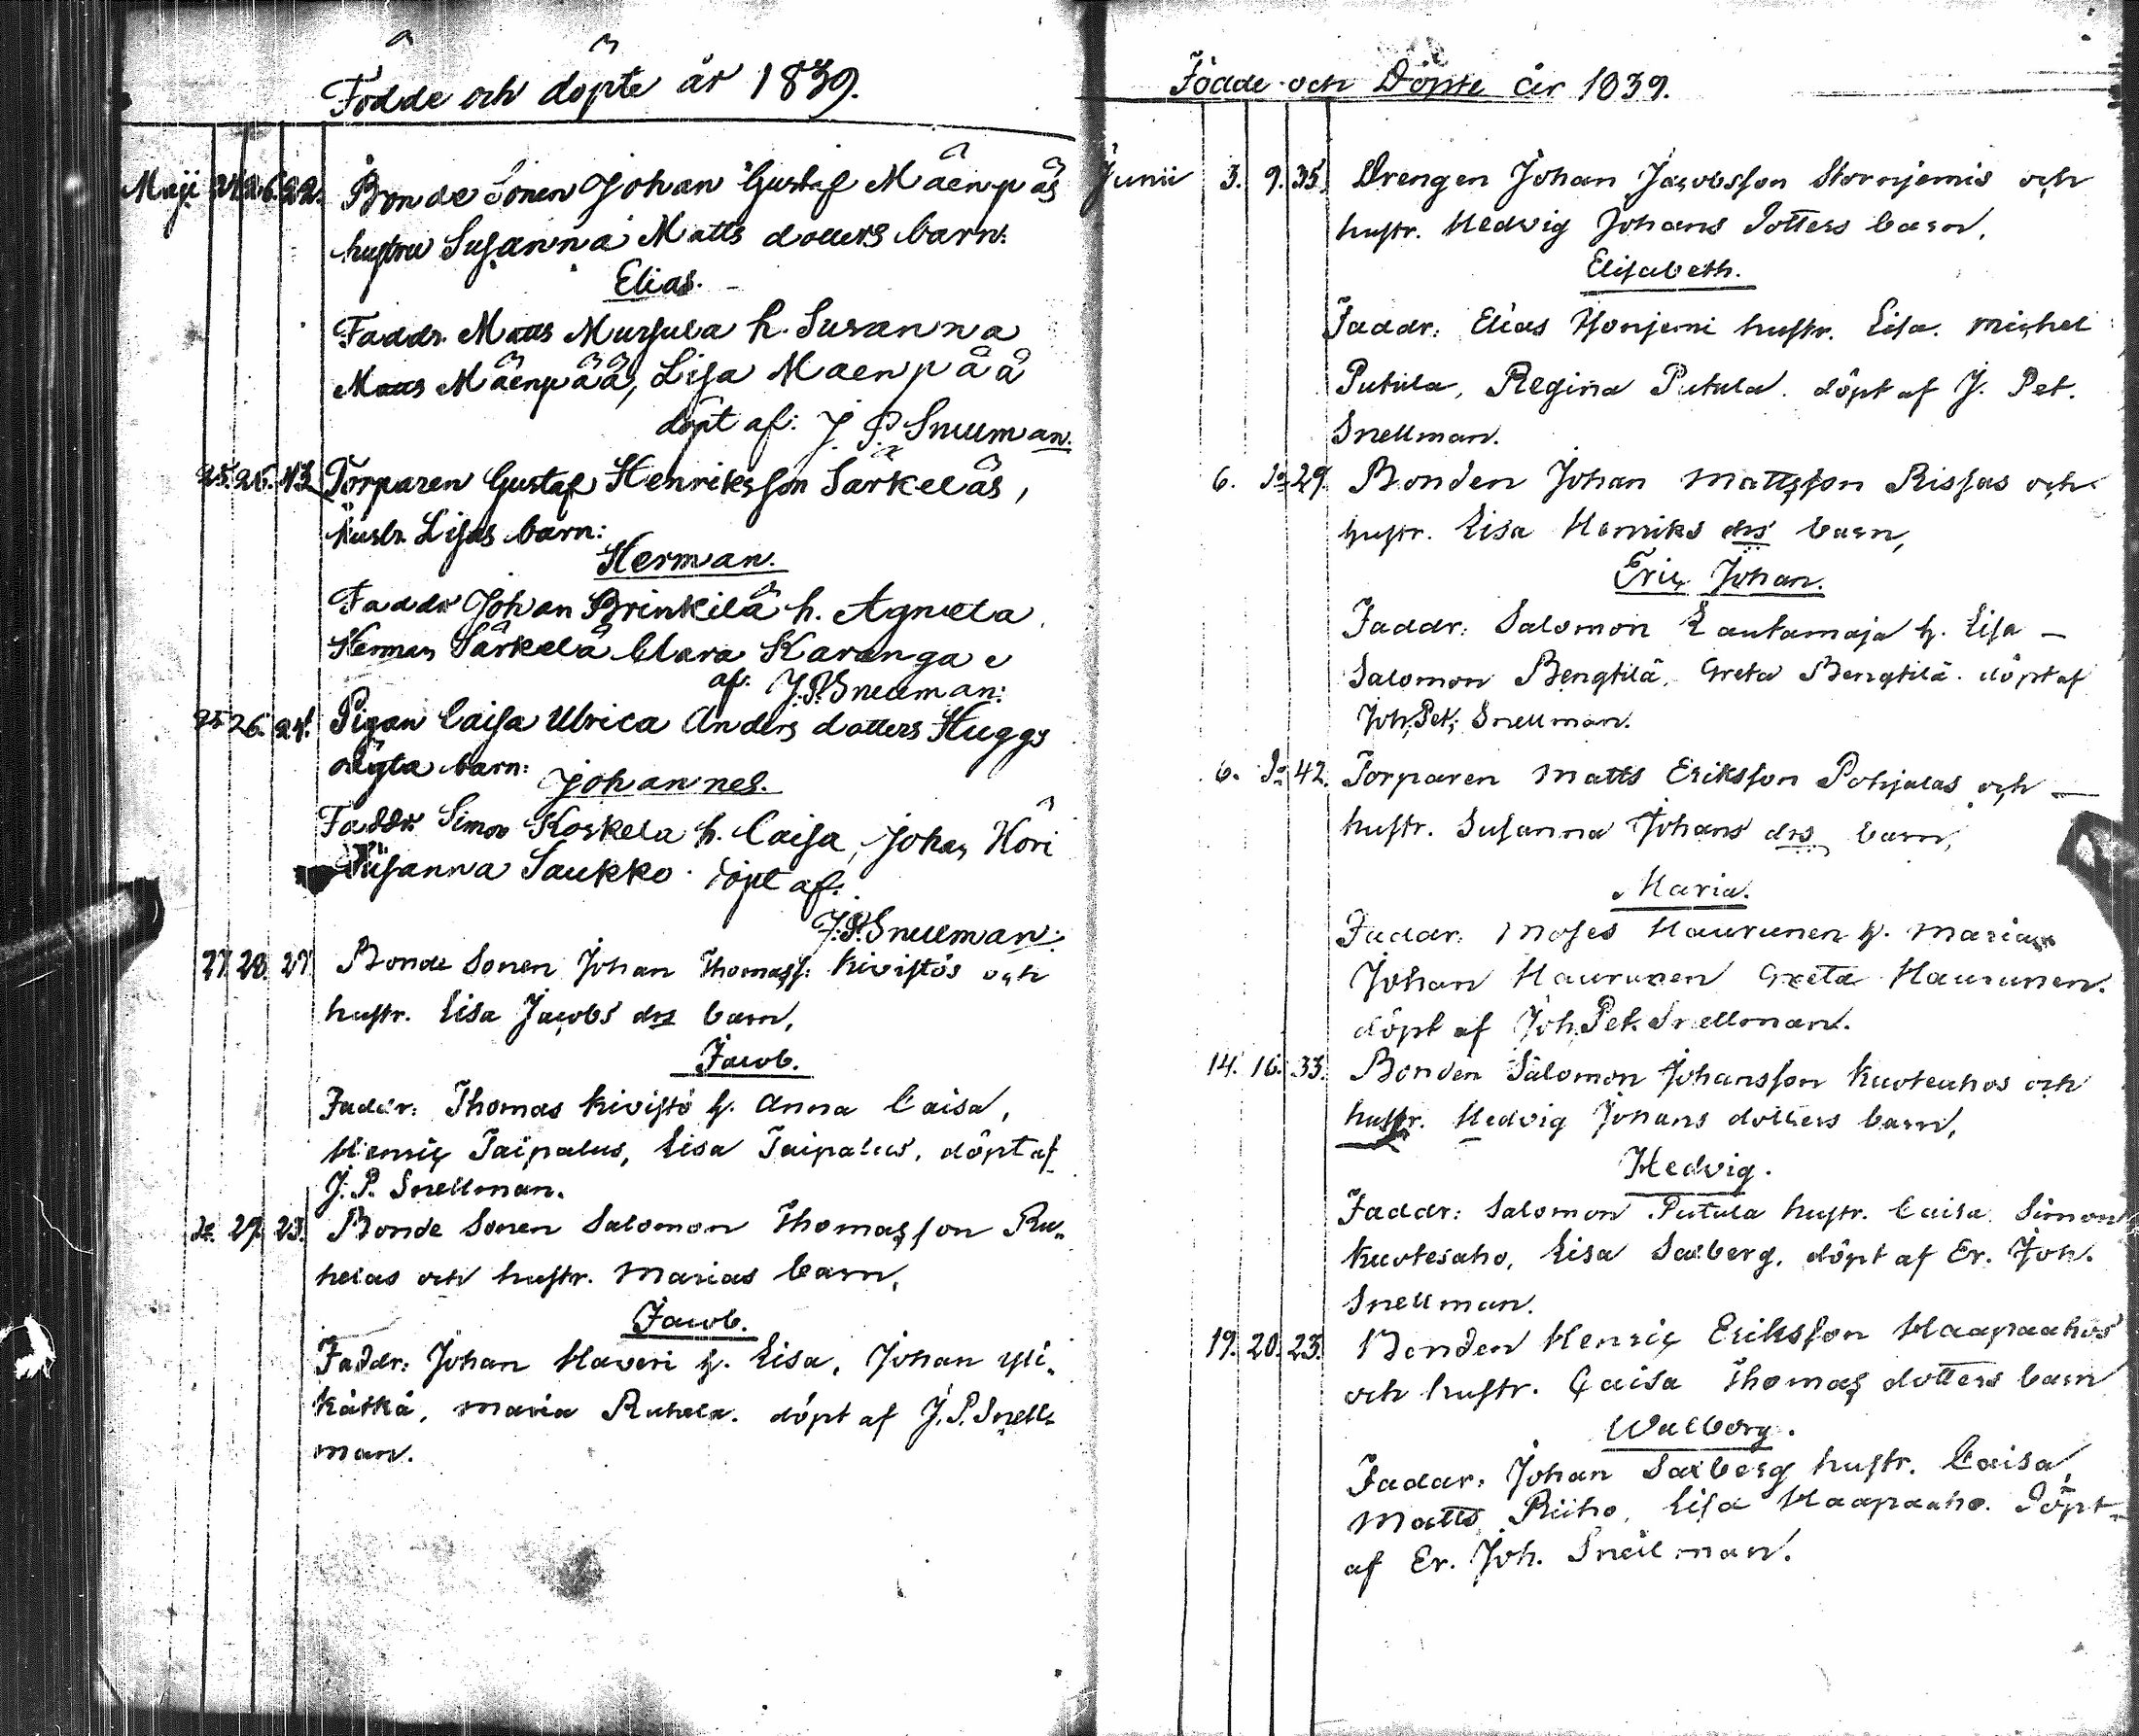 Födde och döpte år 1839.
Maji 24. 26. 22. Bonde Sonen Johan Gustaf Mäenpäs
hustru Susanna Matts dotters barn:
Elias.
Faddr. Matts Mursula h. Susanna
Matts Mäenpää, Lisa Mäenpää
döpt af: J. P. Snellman.
25. 26. 43 Torparen Gustaf Henriksson Särkeläs,
hustr. Lisas barn:
Herman.
Faddr Johan Brinkilä h. Agneta
Herman Särkelä Clara Karanga
af: J.P. Snellman:
25 26. 24. Pigan Caisa Ulrica Anders dotters Huggs
oägta barn:
Johannes.
Faddr. Simon Koskela h. Caisa, Johan Höri
Susanna Saukko. döpt af:
J.P. Snellman.
27. 28. 27. Bonde Sonen Johan Thomass: Kivistös och
hustr. Lisa Jacobs drs barn,
Jacob.
Faddr: Thomas Kivistö h. Anna Caisa,
Henric Taipalus, Lisa Taipalus, döpt af
J. P. Snellman.
29. 23. Bonde Sonen Salomon Thomasson Ru-
helas och hustr. Marias barn,
Jacob.
Faddr: Johan Haveri h. Lisa, Johan Yli-
Kätkä, Maria Ruhela. döpt af J. P. Snell-
man.
Födde och Döpte år 1839.
Junii 3. 9. 35. Drengen Johan Jacobsson Hornjemis och
hustr. Hedvig Johans Dotters barn,
Elisabeth.
Faddr: Elias Honjemi hustr. Lisa. Michel
Putula, Regina Putula. döpt af J. Pet.
Snellman.
6. Do 29. Bonden Johan Mattsson Rissas och
hustr. Lisa Henriks drs barn,
Eric Johan.
Faddr: Salomon Rautamaja h. Lisa —
Salomon Bengtilä, Greta Bengtilä. döpt af
Joh. Pet. Snellman.
6. Do 42. Torparen Matts Eriksson Pohjalas och —
hustr. Susanna Johans drs barn,
Maria.
Faddr: Moses Haurunen h. Maria
Johan Haurunen Greta Haurunen.
döpt af Joh. Pet. Snellman.
14. 16. 33. Bonden Salomon Johansson Kuoteahos och
hustr. Hedvig Johans dotters barn,
Hedvig.
Faddr: Salomon Putula hustr. Caisa. Simon
Kuotesaho, Lisa Salberg, döpt af Er. Joh.
Snellman.
19. 20. 23. Bonden Henric Eriksson Haapaahos
och hustr. Caisa Thomas dotters barn
Walborg.
Faddr: Johan Salberg hustr. Caisa,
Matts Riiho, Lisa Haapaaho. Döpt
af Er. Joh. Snellman.